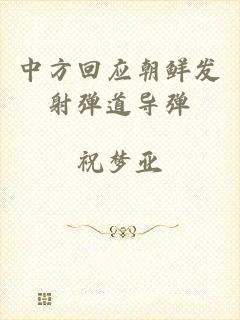 中方回应朝鲜发
射弹道导弹
祝梦亚